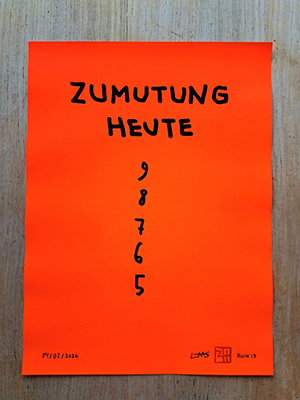 ZUMUTUNG
HEUTE
9
8
7
6
5
04/02/2026
RUIN 19